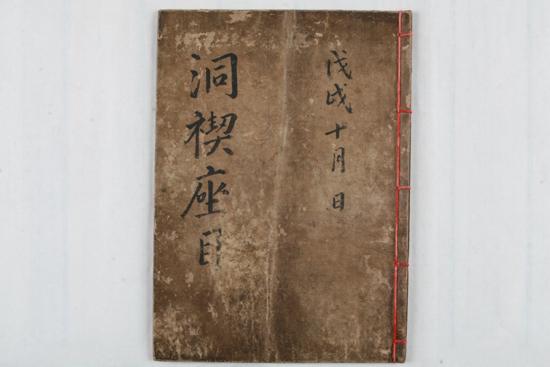 戊戌十月日
洞禊座目